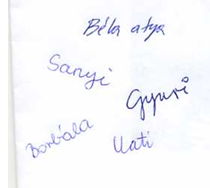 Béla atya
Sanyi
Gyuri
Borbála
Kati